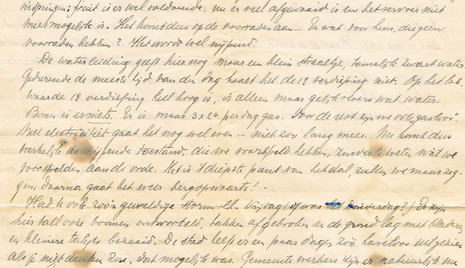 vriezeningen, fruit is er wel voldoende, nu er veel afgewaaid is en het vervoer niet
meer mogelijk is. Het komt dus op de voorraden aan... En wat voor hen, die geen
voorraden hebben? Het wordt wel nijpend.
De waterleiding geeft hier nog maar een klein straaltje, tamelijk zwart water
Gedurende de meeste tijd van de dag haalt het de 1e verdieping niet. Op het lab,
waar de 1e verdieping heel hoog is, is alleen maar gelijkvloers wat water.
Boven is er niets. Er is maar 3x per dag gas. Voor de rest zijn we ook gasloos.
Met electriciteit gaat het nog wel even – niet zoo lang meer. Nu komt dus
werkelijk de nijpende toestand, die we voorspeld hebben, zooals we weten, wat we
voorspelden aan de orde. Het is 't diepste punt van het dal, zullen we maar zeg-
gen, daarna gaat het weer bergopwaarts!
Had U ook zoo'n geweldige storm l.l. Vrijdag (of was het donderdag?) Er zijn
hier tal van boomen ontworteld, takken afgebroken en de grond lag met bladeren
en kleinere takjes bezaaid. De stad heeft er een paar dagen zoo havenloos uitgezien
als je niet denken zou, dat mogelijk was. Gemeente werkers zijn er natuurlijk